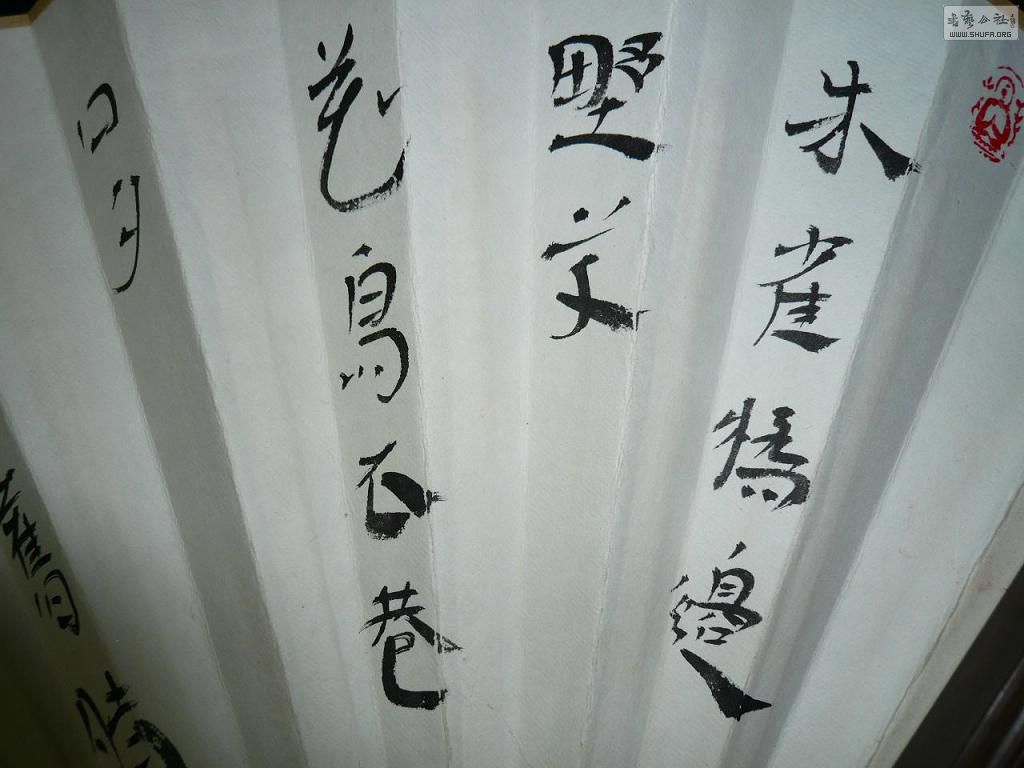 朱雀橋邊
野草
花烏衣巷
口夕
舊時
书艺公社
WWW.SHUFA.ORG